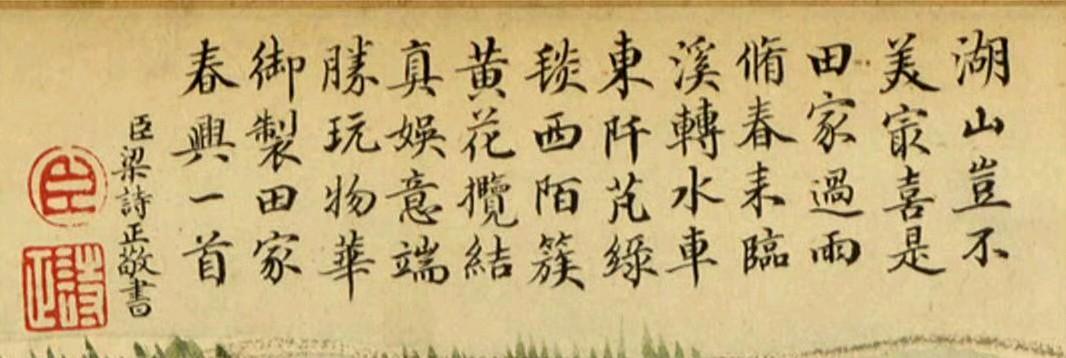 湖山豈不
美㝡喜是
田家過雨
脩春耒臨
溪轉水車
東阡芃綠
毯西陌簇
黄花攬結
真娛意端
勝玩物華
御製田家
春興一首
臣梁詩正敬書
臣
詩正